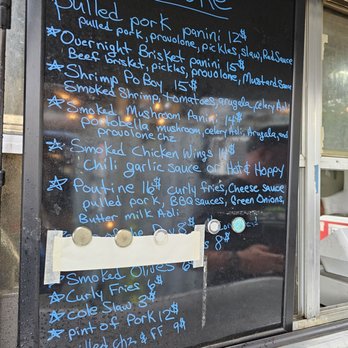 pulled pork panini 12$
pulled pork, provolone, pickles, slaw, Red Sauce
Overnight Brisket panini 15$
Beef brisket, pickles, provolone, Mustard Sauce
Shrimp Po Boy 15$
Smoked Shrimp, tomatoes, arugala, celery Aoli
Smoked Mushroom Panini 14$
portobella mushroom, celery Aoli, Arugala, and
provolone chz
Smoked Chicken Wings 14$
Chili garlic sauce or Hot & Hoppy
Poutine 16$ curly fries, Cheese sauce
pulled pork, BBQ sauces, Green Onions,
Butter milk Aoli
8$
8$
Smoked Olives 6$
Curly Fries 6$
cole Slaw 8$
pint of Pork 12$
chz & FF 9$